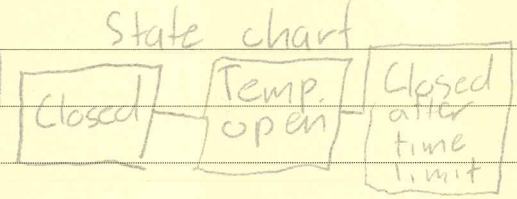 State chart
Closed
Temp.
open
Closed
after
time
limit